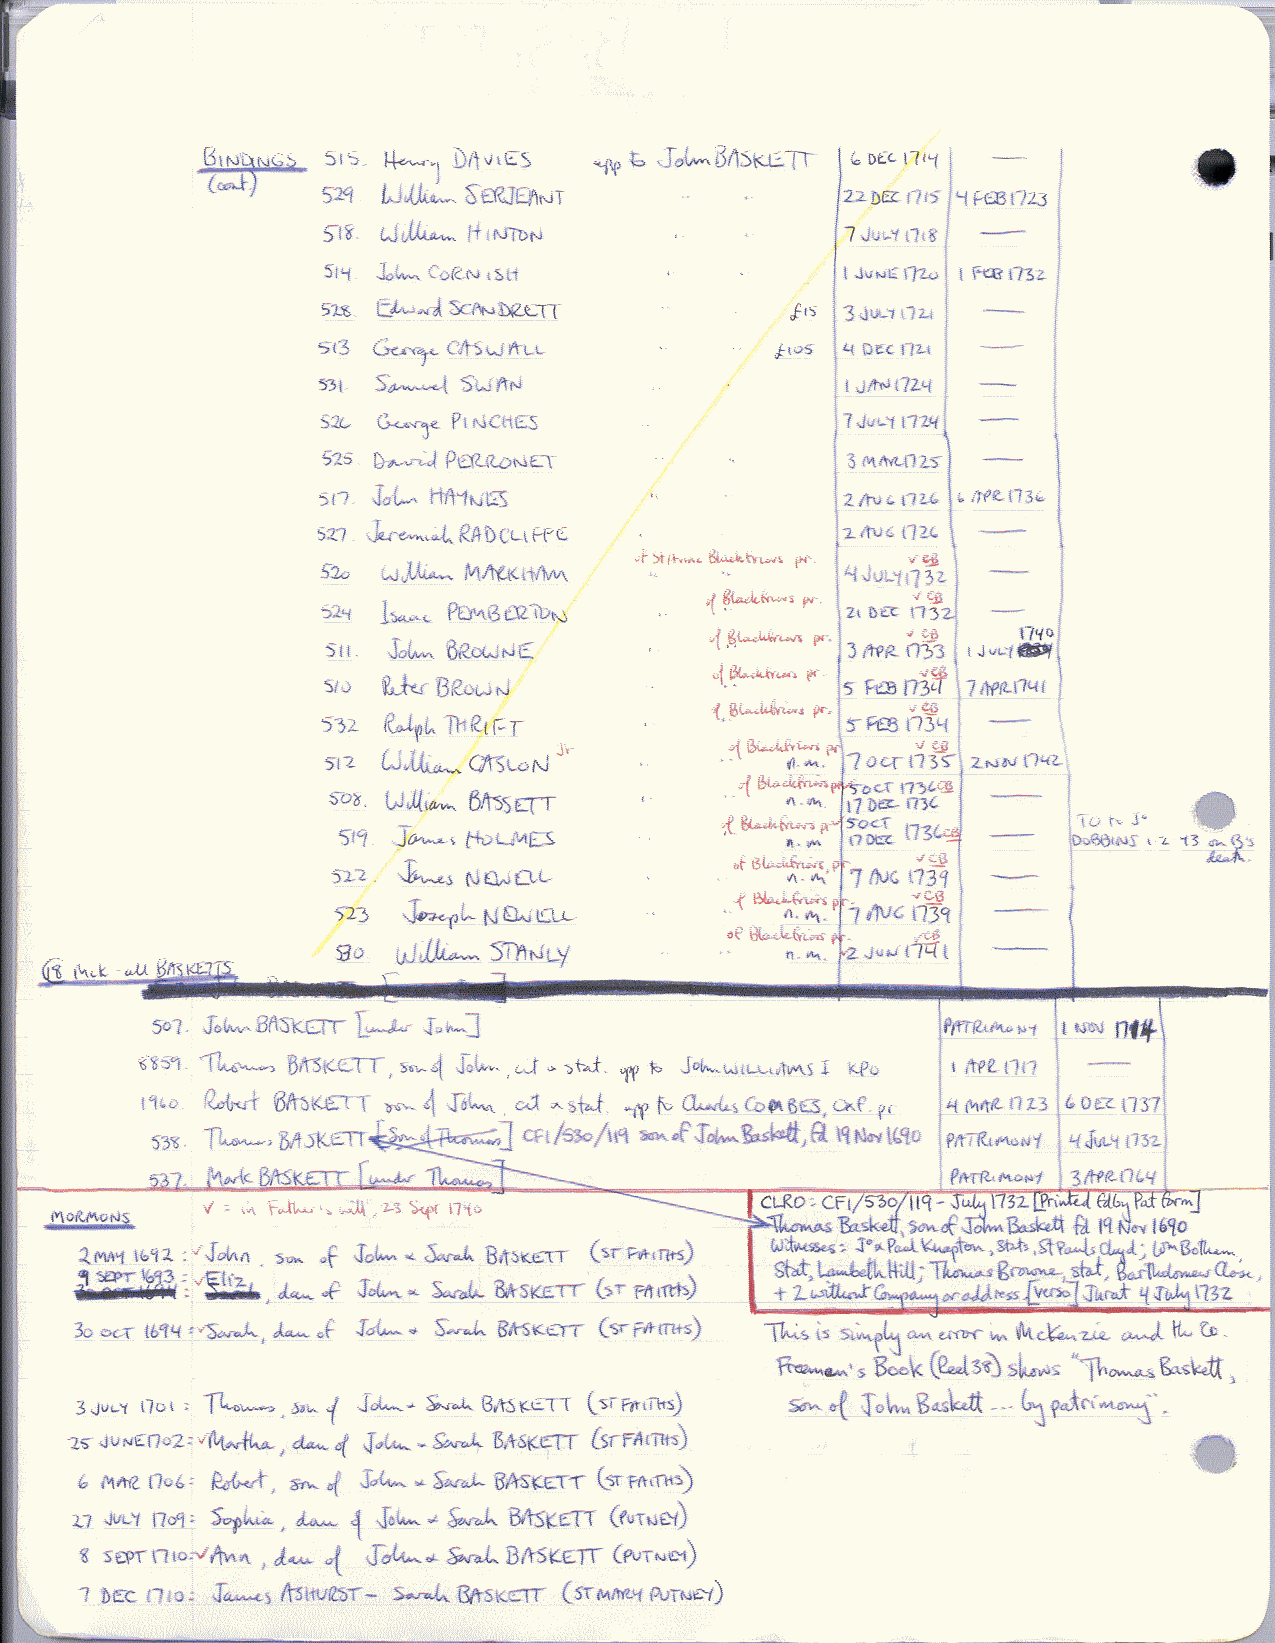 BINDINGS 515. Henry DAVIES app to John BASKETT 6 DEC 1714 —
(cont) 529. William SERJEANT " " 22 DEC 1715 4 FEB 1723
518. William HINTON " " 7 JULY 1718 —
514. John CORNISH " " 1 JUNE 1720 1 FEB 1732
528. Edward SCANDRETT £15 3 JULY 1721 —
513 George CASWALL " " £105 4 DEC 1721 —
531. Samuel SWAN " " 1 JAN 1724 —
526 George PINCHES " " 7 JULY 1724 —
525. David PERRONET " " 3 MAR 1725 —
517. John HAYNES " " 2 AUG 1726 6 APR 1736
527. Jeremiah RADCLIFFE 2 AUG 1726 —
of St Anne Blackfriars pr. v CB
520 William MARKHAM " " 4 JULY 1732 —
of Blackfriars pr. v CB
524 Isaac PEMBERTON " 21 DEC 1732 —
of Blackfriars pr. v CB 1740
511. John BROWNE " " 3 APR 1733 1 JULY
of Blackfriars pr. v CB
510 Peter BROWN " " 5 FEB 1734 7 APR 1741
of Blackfriars pr. v CB
532 Ralph THRIFT " " 5 FEB 1734 —
of Blackfriars pr v CB
512 William CASLON Jr " " n.m. 7 OCT 1735 2 NOV 1742
of Blackfriars pr 5 OCT 1736 CB
508. William BASSETT " " n.m. 17 DEC 1736 —
of Blackfriars pr 5 OCT TO to Jo
519. James HOLMES n.m 17 DEC 1736 CB — DOBBINS 1 2 43 on B's death.
of Blackfriars, pr. v CB
522. James NEWELL " n.m 7 AUG 1739 —
of Blackfriars pr. v CB
523 Joseph NEWELL " " n.m. 7 AUG 1739 —
of Blackfriars pr. v CB
530 William STANLY " " n.m. 2 JUN 1741 —
18 McK - all BASKETTS
507. John BASKETT [under John] PATRIMONY 1 NOV 1714
8859. Thomas BASKETT, son of John, cit & stat. app to John WILLIAMS I KPO 1 APR 1717 —
1960. Robert BASKETT son of John, cit & stat. app to Charles COMBES, Oxf. pr 4 MAR 1723 6 DEC 1737
538. Thomas BASKETT [Son of Thomas] CF1/530/119 son of John Baskett, fd 19 Nov 1690 PATRIMONY 4 JULY 1732
537. Mark BASKETT [under Thomas] PATRIMONY 3 APR 1764
MORMONS v = in Father's will, 23 Sept 1740
CLRO: CF1/530/119 - July 1732 [Printed fd by Pat form]
Thomas Baskett, son of John Baskett fd 19 Nov 1690
Witnesses: Jo & Paul Knapton, Stats, St Pauls Chyd; Wm Botham,
Stat, Lambeth Hill; Thomas Browne, stat, Bartholomew Close,
+ 2 without Company or address. [verso] Jurat 4 July 1732
2 MAY 1692: v John, son of John & Sarah BASKETT (ST FAITHS)
9 SEPT 1693: v Eliz
, dau of John & Sarah BASKETT (ST FAITHS)
30 OCT 1694: v Sarah, dau of John & Sarah BASKETT (ST FAITHS)
This is simply an error in McKenzie and the Co.
Freemen's Book (Reel 38) shows "Thomas Baskett,
son of John Baskett --- by patrimony".
3 JULY 1701: Thomas, son of John & Sarah BASKETT (ST FAITHS)
25 JUNE 1702: v Martha, dau of John & Sarah BASKETT (ST FAITHS)
6 MAR 1706: Robert, son of John & Sarah BASKETT (ST FAITHS)
27 JULY 1709: Sophia, dau of John & Sarah BASKETT (PUTNEY)
8 SEPT 1710: v Ann, dau of John & Sarah BASKETT (PUTNEY)
7 DEC 1710: James ASHURST - Sarah BASKETT (ST MARY PUTNEY)